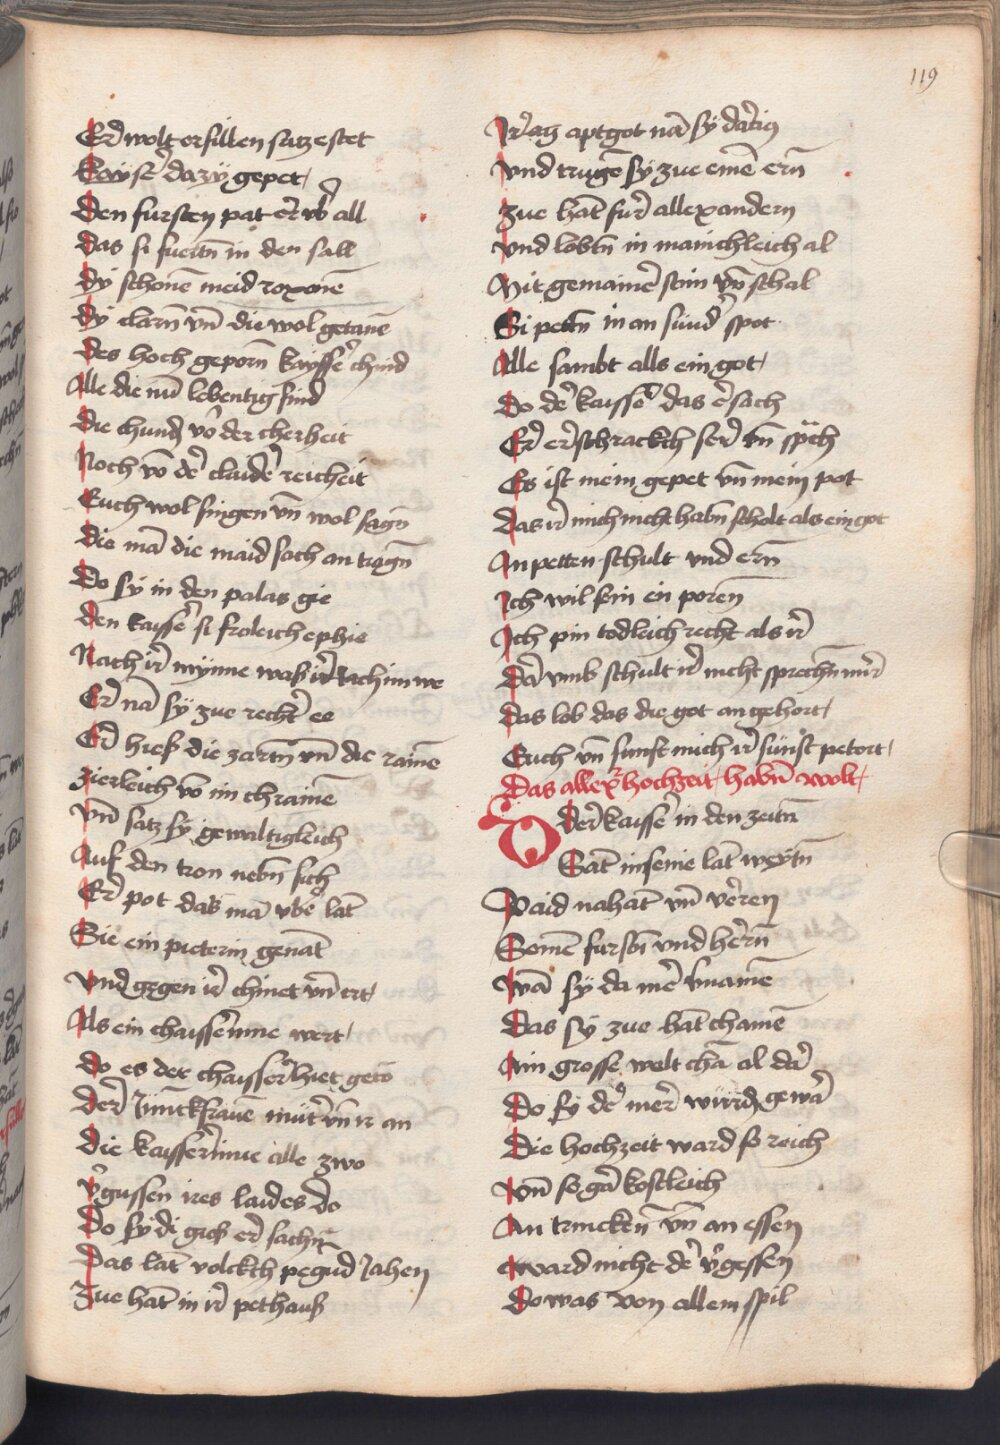 119
Er wolt erfillen satz e stet
kayser dazÿ gepet
Den fursten pat er vb̄ all
Das si fuertn̄ in den sall
dÿ schonē meid roxonē
dÿ clarn̄ vn̄ die wol getanē
des hoch geporn̄ kaysser chind
Alle die nū lebentig sind
die chund vō der cherheit
Noch vō der claider reicheit
Euch wol singen vn̄ wol sagn̄
die mā die maid sach an tragn̄
Do sÿ in den palas gie
den kaisser si froleich ephie
Nach ir mÿnne was ir nach im we
Er nā sÿ zue rechter ee
Er hieß die zartn̄ vn̄ die rainē
zierleich vō im chrainē
Vn̄ satz sÿ gewaltigleich
Auf den tron nebn̄ sich
Er pot das mā vber lāt
Sie ein pieterin genāt
vnd gegen ir chniet vn̄ ert
Als ein chaisserinne wert
do es der chaisser hiet getō
Der Junckfrauē müter vn̄ ir an
die kaisserinne alle zwo
v̄gussen ires laides do
Do sÿ di gros er sachn̄
Das lāt volckch pegūd Jahen
Zue hāt in ir pethauß
Ir ag aptgot nā sÿ daraus
vnd trugē sÿ zue einē ern̄
zue hāt fur allexandern
vnd lobtn̄ in mainchleich al
Mit gemainer stim vn̄ schal
Si pettn̄ in an sunder spot
Alle sambt alls ein got
Do der kaisser das ersach
Er erschrackch ser vn̄ sprach
Es ist mein gepet vn̄ mein pot
Das ir mich nicht habn̄ scholt als ein got
An petten schult vnd ern̄
Ich wil sein en porenn
Ich pin todleich recht als ir
Dar vmb schult ir nicht sprechn̄ mir
Das lob das die got an gehort
Euch vn̄ sunst mich ir sünst petort
Das allexr̄ hochzeit habn̄ wolt
Der kaisser in den zeitn̄
Sāt in seine lāt weÿtn̄
Paid nahāt vn̄ veren
Seinē furstn̄ vnd hern̄
Wā sÿ da mer vnamē
Das sÿ zue hāt chamē
Ain grosse welt chā al dar
Do sÿ der mer wurdn̄ gewar
Die hochzeit ward so reich
Vn̄ so gar kostleich
An trinckn̄ vn̄ an essen
Ward nicht der v̄gessen
Do was von allem spil